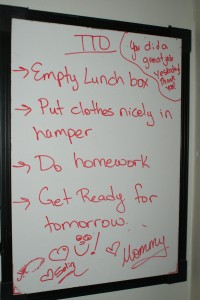 TTD
You did a
great job
yesterday
Thank
You!
→ Empty Lunch box
→ Put clothes nicely in
hamper
→ Do homework
→ Get Ready for
tomorrow.
Mommy